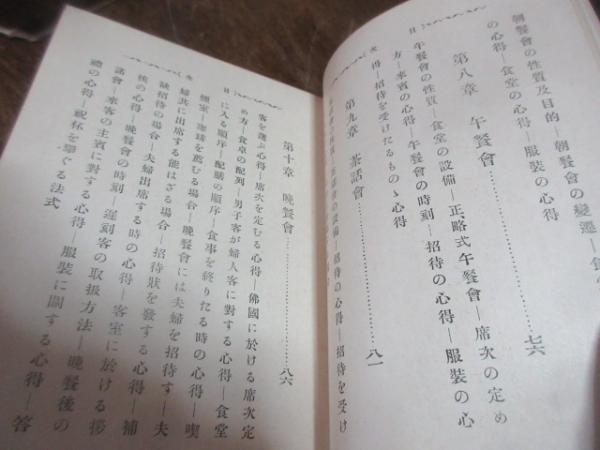 朝餐會の性質及目的―朝餐會の變遷―食
の心得―食堂の心得―服裝の心得
第八章 午餐會 七六
午餐會の性質―食堂の設備―正略式午餐會―席次の定め
方―來賓の心得―午餐會の時刻―招待の心得―服裝の心
得―招待を受けたるものゝ心得
第九章 茶話會 八一
の設備―招待の心得―招待を受け
目 次
第十章 晩餐會 八六
客を選ぶ心得―席次を定むる心得―佛國に於ける席次定
め方―食卓の配列―男子客が婦人客に對する心得―食堂
に入る順序―配膳の順序―食事を終りたる時の心得―喫
煙室―珈琲を薦むる場合―晩餐會には夫婦を招待す―夫
婦共に出席する能はざる場合―招待狀を發する心得―補
缺招待の場合―夫婦出席する時の心得―客室に於ける挨
拶の心得―晩餐會の時刻―遲刻客の取扱方法―晩餐後の
話會―來客の主賓に對する心得―服裝に關する心得―答
禮の心得―祝杯を擧ぐる法式